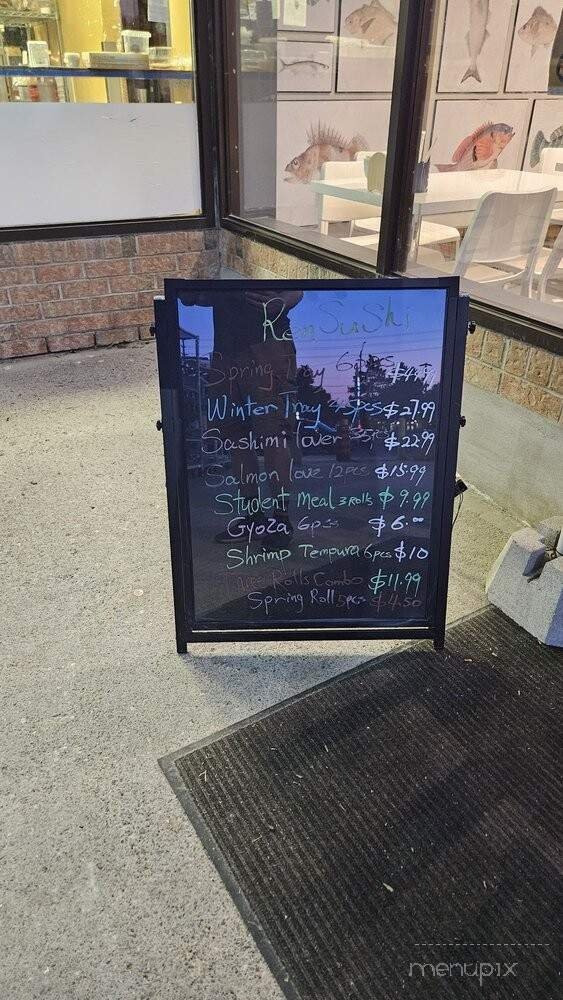 Ren Sushi
Spring Tray 6 pcs
Winter Tray 45pcs $27.99
Sashimi lover 35pcs $22.99
Salmon love 12pcs $15.99
Student Meal 3 Rolls $9.99
Gyoza 6pcs $6.00
Shrimp Tempura 6pcs $10
Rolls Combo $11.99
Spring Roll 5pcs $4.50
menupix